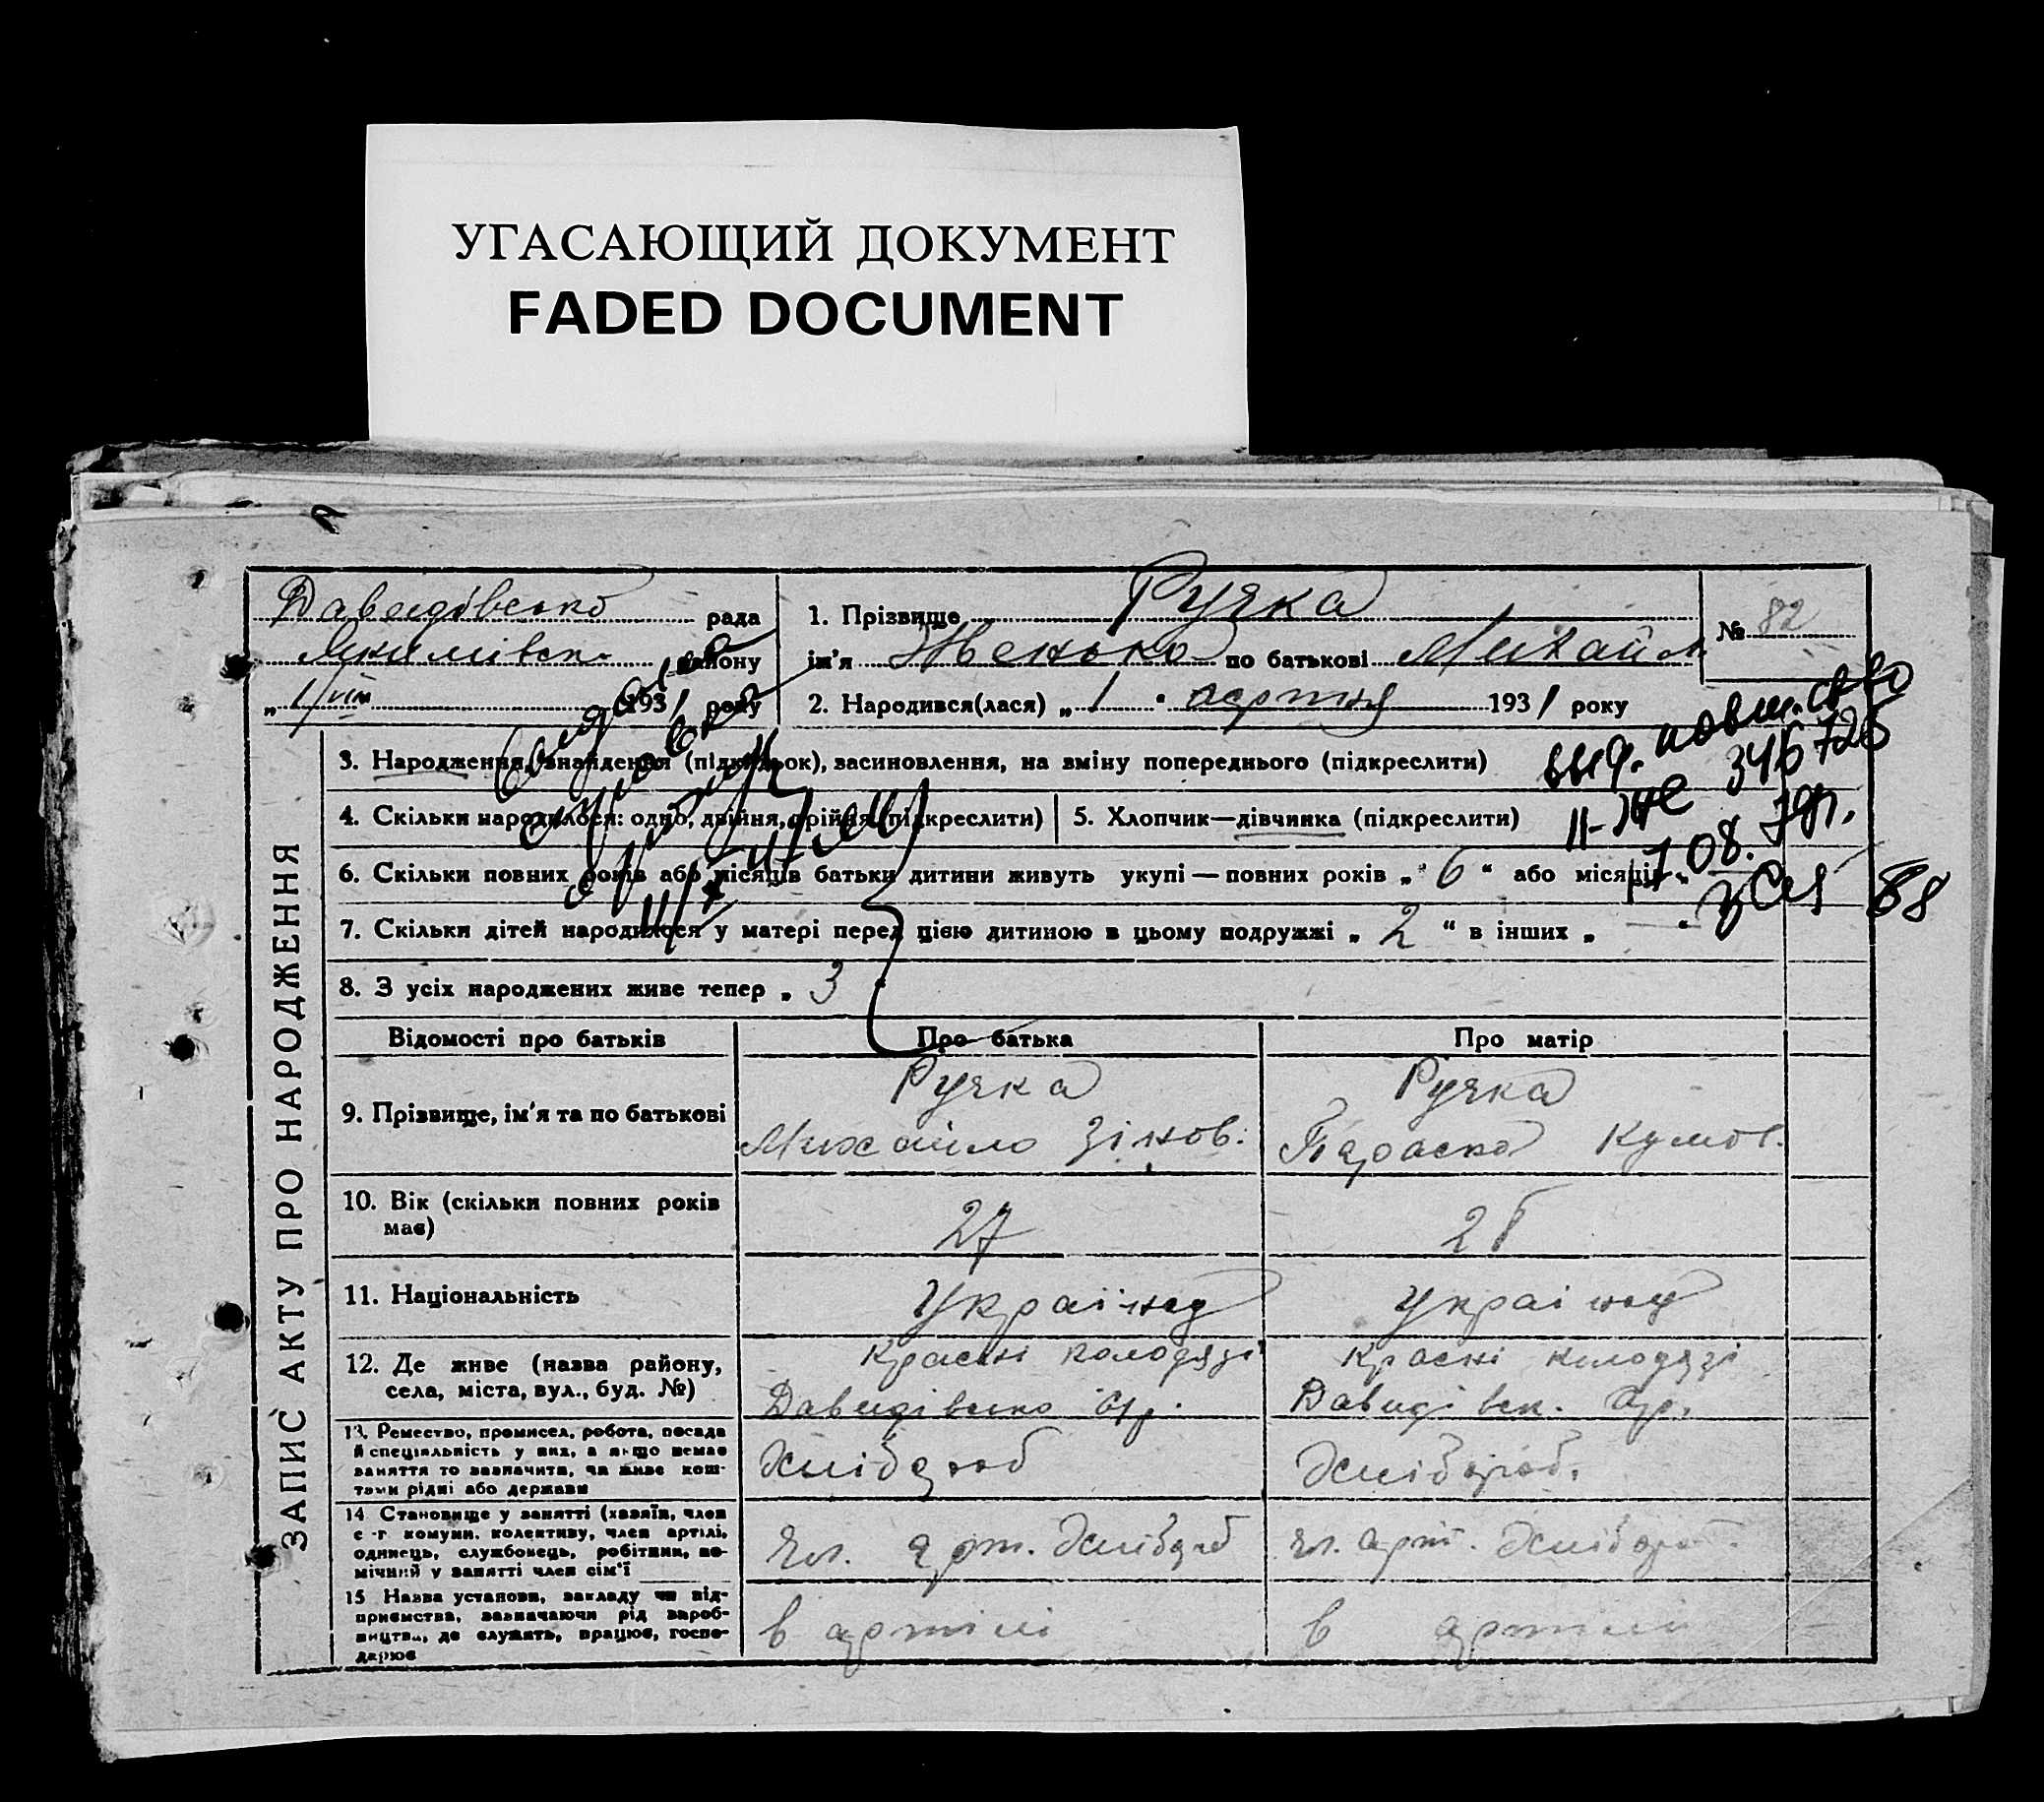 УГАСАЮЩИЙ ДОКУМЕНТ
FADED DOCUMENT
Давидівсько рада
Якимівськ. району
„1/VIII 1931 року
1. Прізвище Ручка
ім'я Женько по батькові Михайл
№ 82
2. Народився(лася) „1" серпня 1931 року
выд. повт. св-во
II-ЖС 346726
1 08. 79г.
ЗАПИС АКТУ ПРО НАРОДЖЕННЯ
3. Народження, знайдення (підкидьок), засиновлення, на зміну попереднього (підкреслити)
4. Скільки народилося: одно, двійня, трійня (підкреслити)
5. Хлопчик—дівчинка (підкреслити)
6. Скільки повних років або місяців батьки дитини живуть укупі — повних років „ 6 “ або місяців „
7. Скільки дітей народилося у матері перед цією дитиною в цьому подружжі „ 2 “ в інших „ — “
8. З усіх народжених живе тепер „ 3
Відомості про батьків Про батька Про матір
9. Прізвище, ім'я та по батькові
Ручка
Михайло Зінов.
Ручка
Параска
10. Вік (скільки повних років
має)
27
11. Національність
12. Де живе (назва району,
села, міста, вул., буд. №)
Красні колодязі
Давидівсько
Красні колодязі
Давидівськ.
13. Ремество, промисел, робота, посада
й спеціяльність у них, а якщо немає
заняття то зазначити, чи живе кош-
тами рідні або держави
Хлібороб
Хлібороб.
14 Становище у занятті (хазяїн, член
с.-г. комуни, колективу, член артілі,
одинець, службовець, робітник, по-
мічний у занятті член сім'ї
Чл. арт. Хлібороб
Чл. арт. Хлібороб.
15 Назва установи, закладу чи під-
приємства, зазначаючи рід вироб-
ництва, де служить, працює, госпо-
дарює
в артілі
в артілі